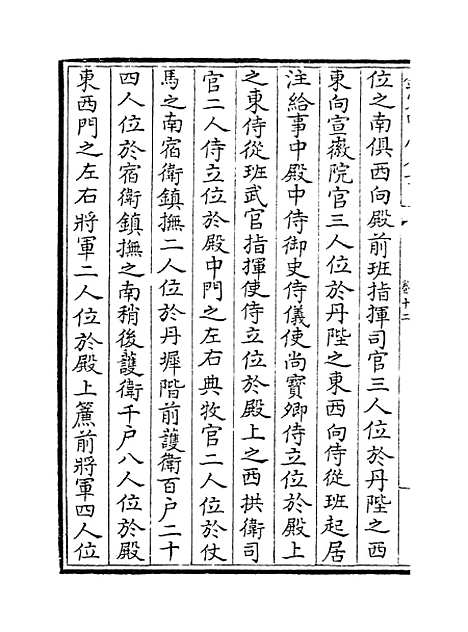 位之南俱西向殿前班指揮司官三人位於丹陛之西
東向宣徽院官三人位於丹陛之東西向侍從班起居
注給事中殿中侍御史侍儀使尚寶卿侍立位於殿上
之東侍從班武官指揮使侍立位於殿上之西拱衛司
官二人侍立位於殿中門之左右典牧官二人位於仗
馬之南宿衛鎮撫二人位於丹墀階前護衛百户二十
四人位於宿衛鎮撫之南稍後護衛千户八人位於殿
東西門之左右將軍二人位於殿上簾前將軍四人位
卷十二